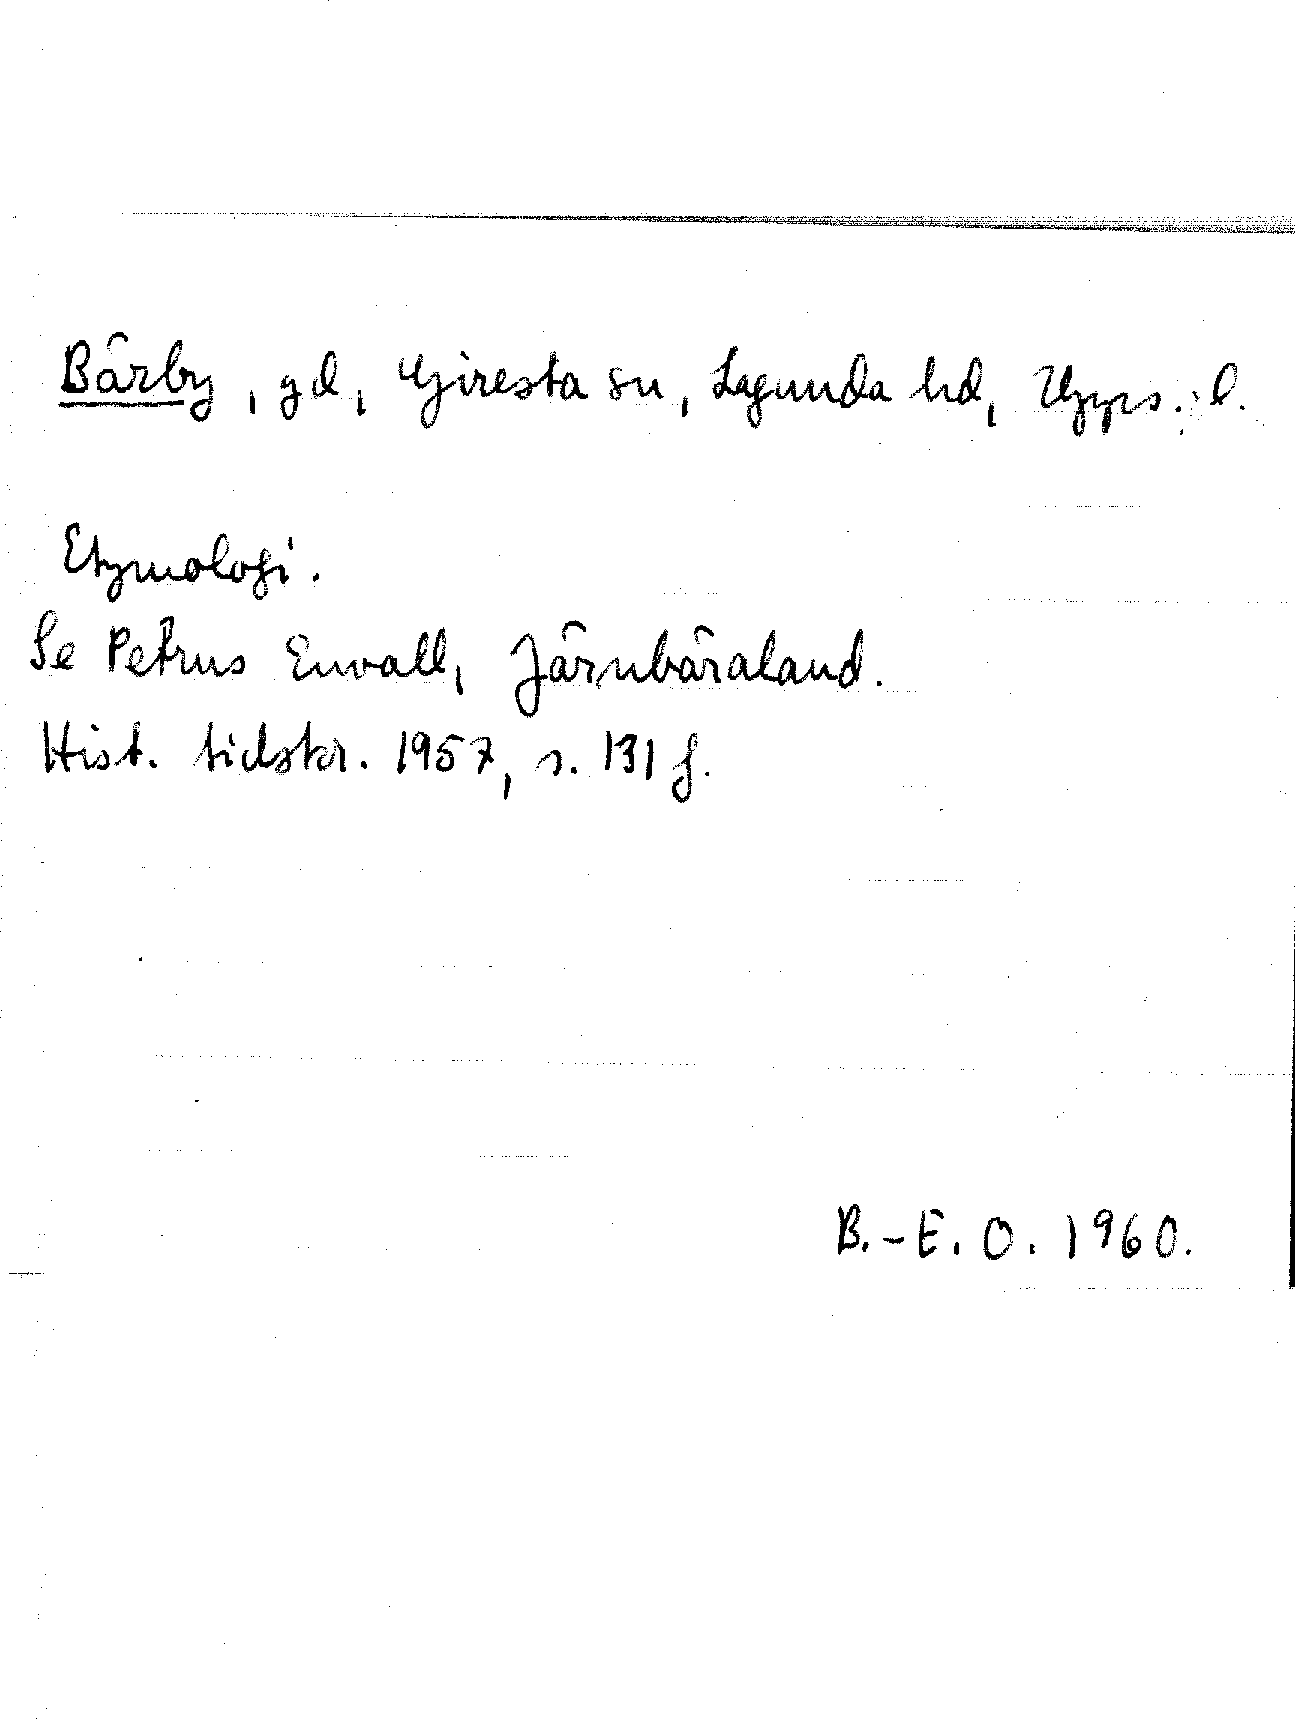 Bärby, gd, Giresta sn, Lagunda hd, Upps. l.
Etymologi.
Se Petrus Envall, Järnbäraland.
Hist. tidskr. 1957, s. 131 f.
B.-E. O. 1960.